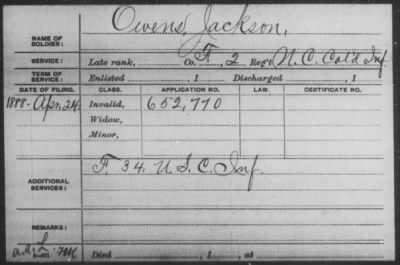 Owens, Jackson,
NAME OF SOLDIER:
SERVICE: Late rank, Co. F, 2 Reg't N. C. Col'd Inf.
TERM OF SERVICE: Enlisted , 1 Discharged , 1
DATE OF FILING. CLASS. APPLICATION NO. LAW. CERTIFICATE NO.
1888-Apr. 24. Invalid, 652,770
Widow,
Minor,
F. 34. U. S. C. Inf.
ADDITIONAL SERVICES:
REMARKS:
Died , 1 , at